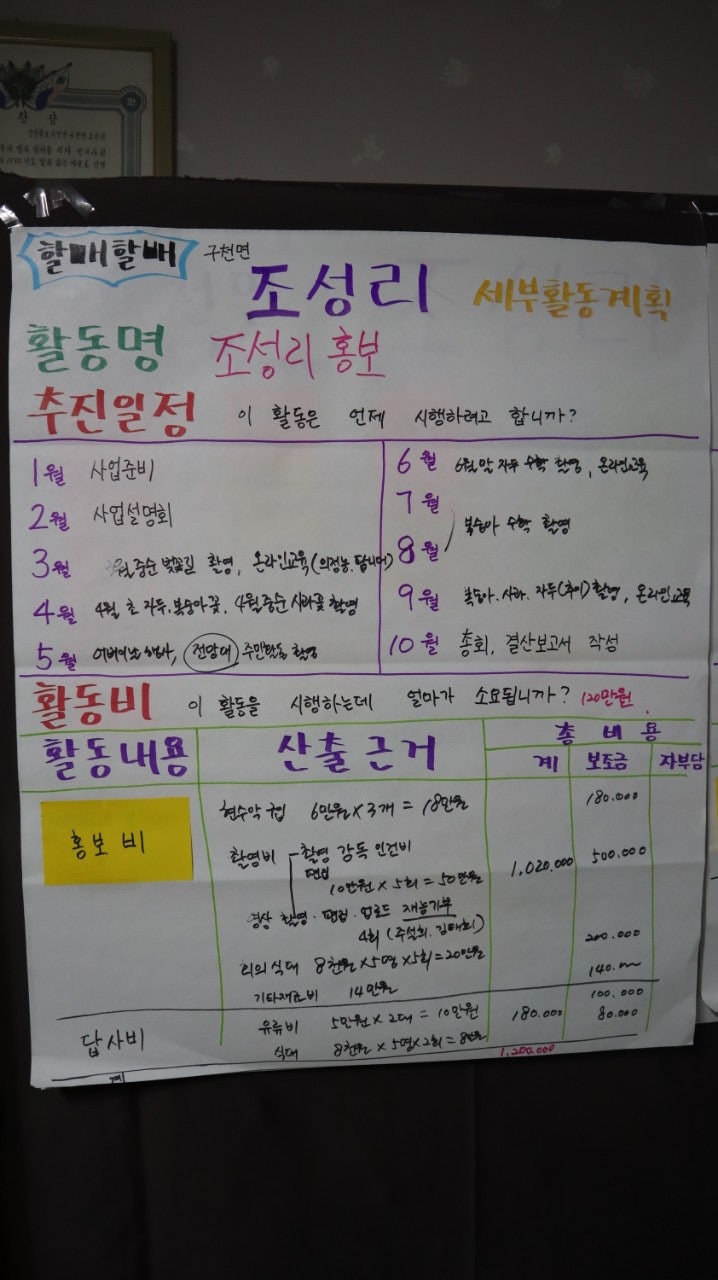 창 장
할매할배 구천면
조성리 세부활동계획
활동명 조성리 홍보
추진일정 이 활동은 언제 시행하려고 합니까?
1월 사업준비
2월 사업설명회
3월 3월중순 벚꽃길 촬영, 온라인교육(의정농.답니더)
4월 4월 초 자두.복숭아꽃, 4월중순 사과꽃 촬영
5월 어버이날 행사, 전망대 주민활동 촬영
6월 6월말 자두 수확 촬영, 온라인교육
7월
8월 복숭아 수확 촬영
9월 복숭아.사과.자두(추이)촬영, 온라인교육
10월 총회, 결산보고서 작성
활동비 이 활동을 시행하는데 얼마가 소요됩니까? 120만원.
활동내용 산출근거 총비용
계 보조금 자부담
홍보비
현수막 구입 6만원 x 3개 = 18만원 180.000
촬영비 촬영 감독 인건비
편집
10만원 x 5회 = 50만원 1,020.000 500.000
영상 촬영.편집.업로드 재능기부
4회 (주석희.김태희)
회의 식대 8천원 x 5명 x 5회 = 20만원 200.000
기타재료비 14만원 140.
답사비
유류비 5만원 x 2대 = 10만원 180.000 100.000
식대 8천원 x 5명 x 2회 = 8만원 80.000
계 1,200.000